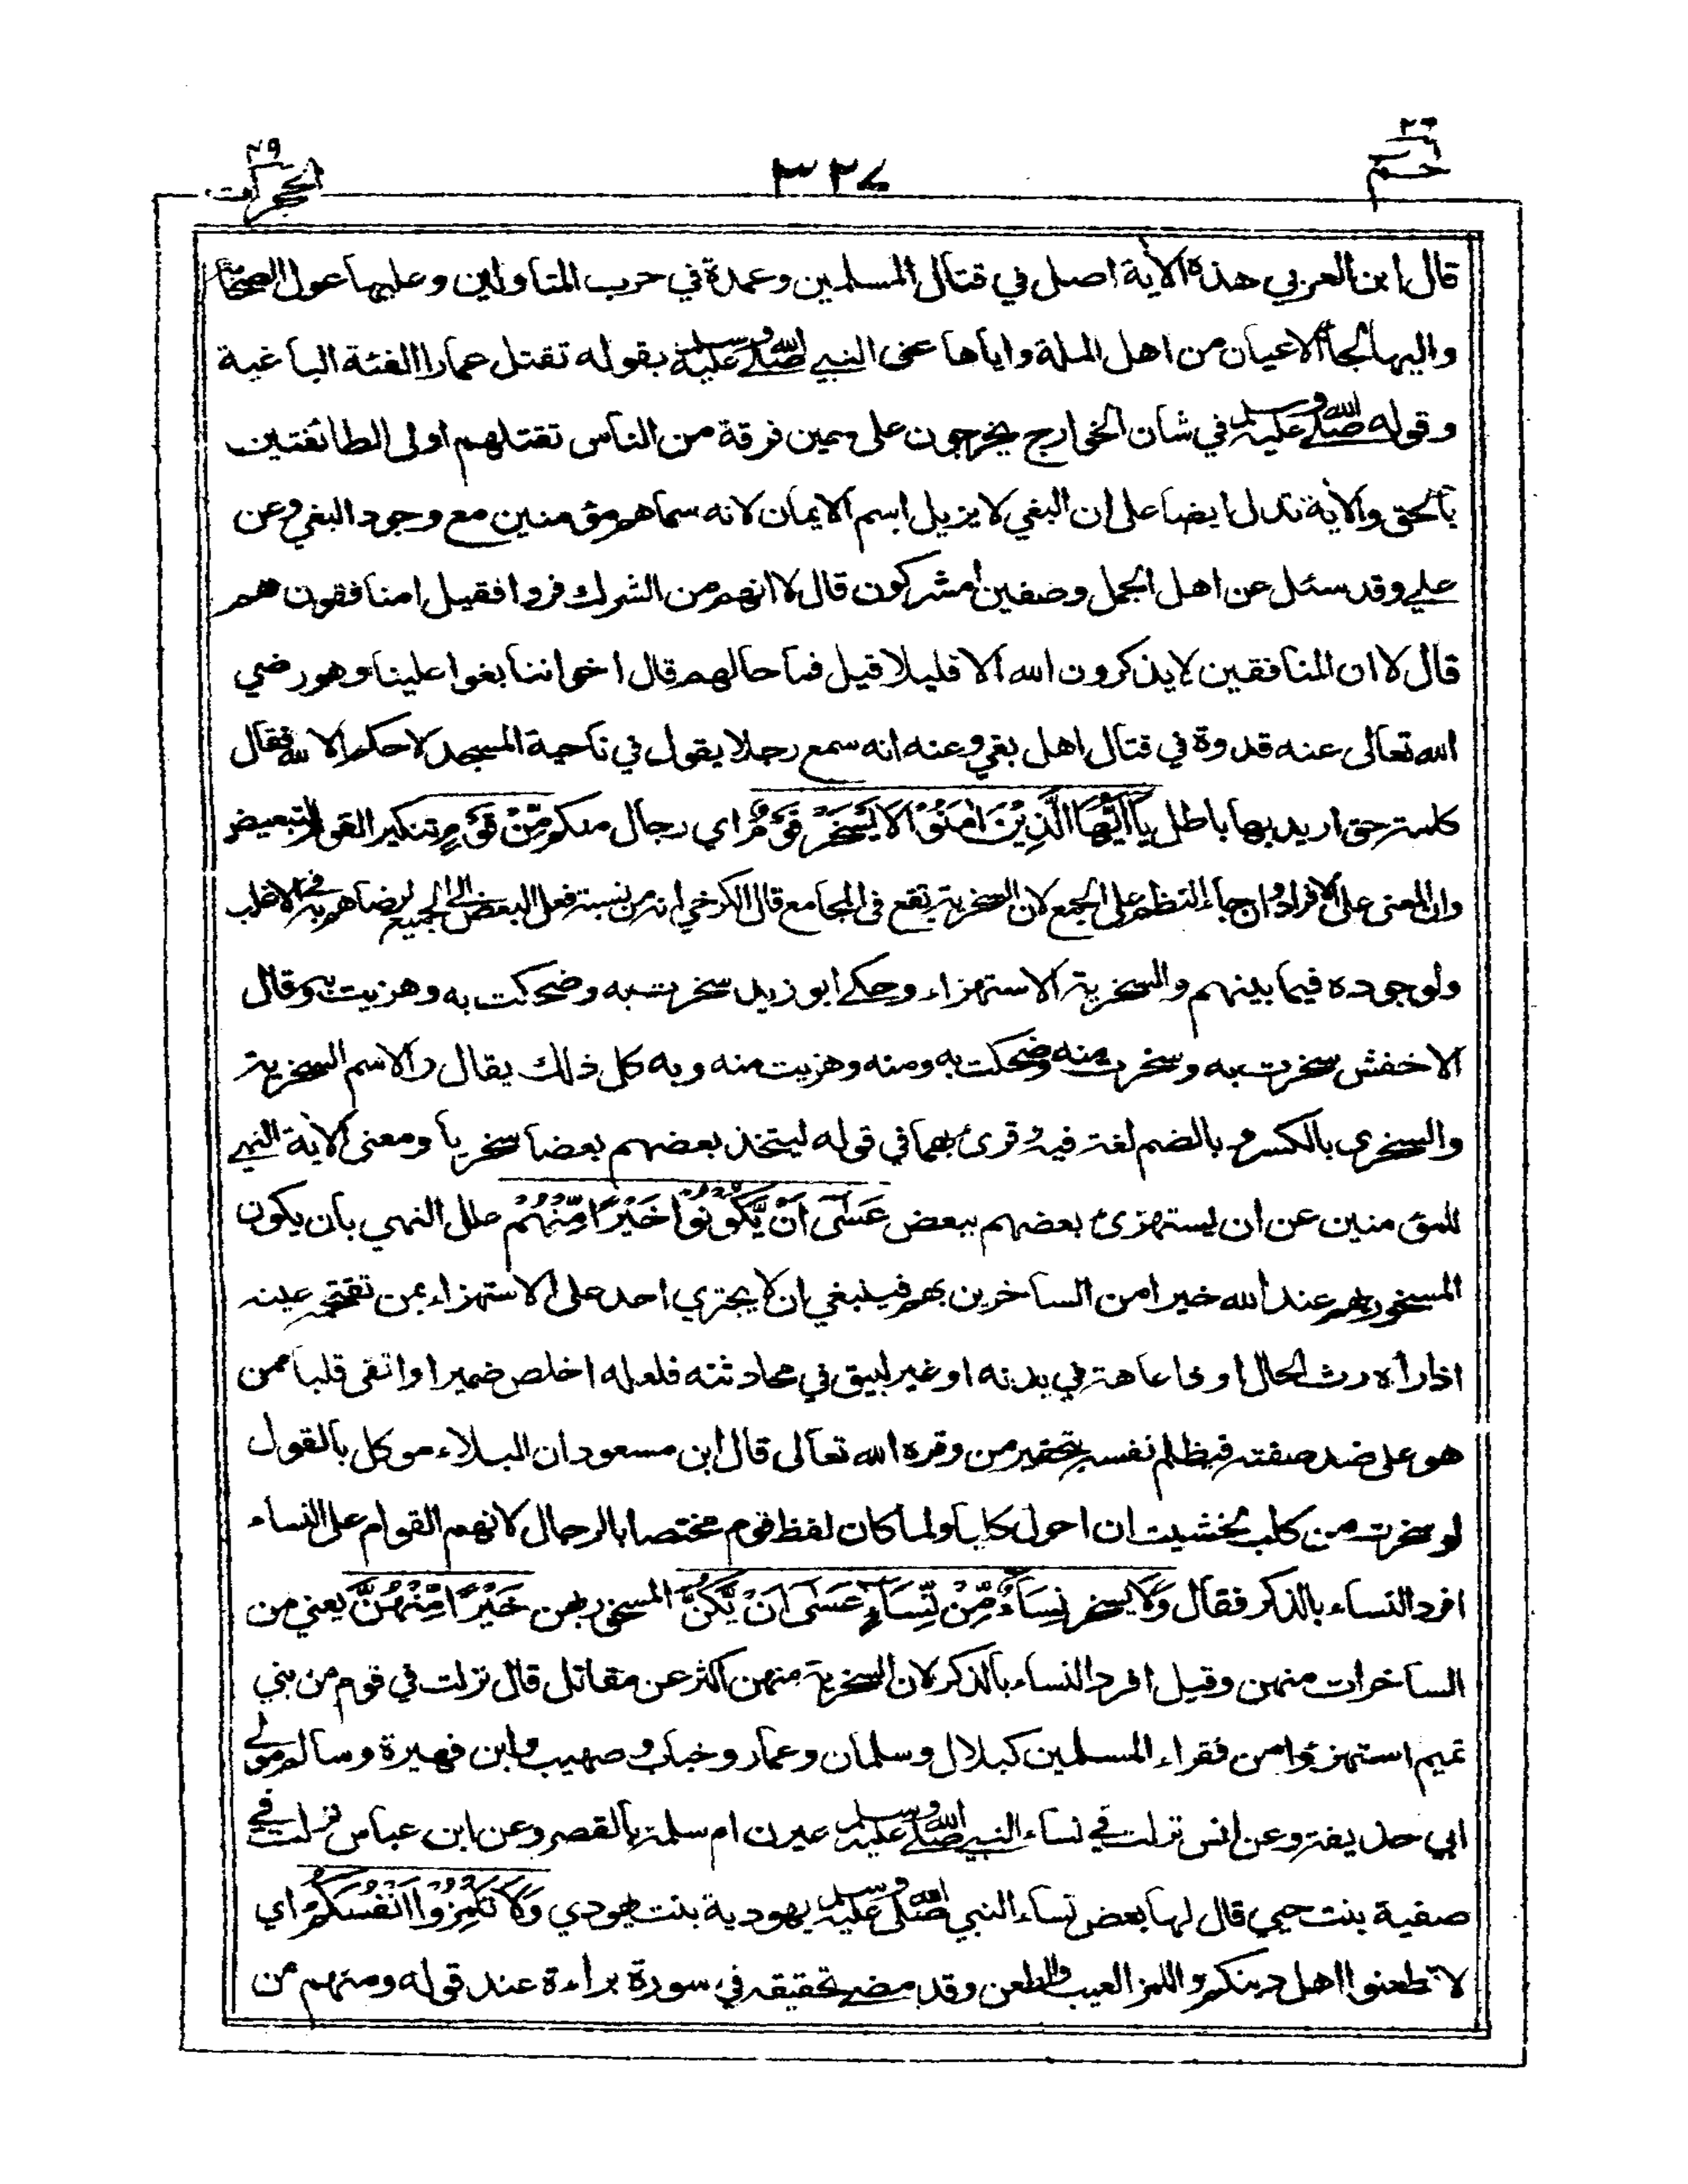 حم ٢٦
٣٢٧
الحجرات ٤٩
قال ابن العربي هذه الآية اصل في قتال المسلمين وعمدة في حرب المتاولين وعليها عول الصحابة
واليها لجأ الاعيان من اهل الملة واياها عنى النبي صلى الله عليه وسلم بقوله تقتل عمارا الفئة الباغية
وقوله صلى الله عليه وسلم في شان الخوارج يخرجون على حين فرقة من الناس تقتلهم اولى الطائفتين
بالحق والآية تدل ايضا على ان البغي لا يزيل اسم الايمان لانه سماهم مؤمنين مع وجود البغي وعن
علي وقد سئل عن اهل الجمل وصفين أمشركون قال لا انهم من الشرك فروا فقيل امنافقون هم
قال لا ان المنافقين لا يذكرون الله الا قليلا قيل فما حالهم قال اخواننا بغوا علينا وهو رضي
الله تعالى عنه قدوة في قتال اهل بغي وعنه انه سمع رجلا يقول في ناحية المسجد لا حكم الا لله فقال
كلمة حق اريد بها باطل يَا أَيُّهَا الَّذِيْنَ اٰمَنُوْا لَا يَسْخَرْ قَوْمٌ اي رجال منكم مِّنْ قَوْمٍ تنكير القوم للتبعيض
وان المعنى على الافراد وان جاء النظم على الجمع لان السخرية تقع في المجامع قال الكرخي انه من نسبة فعل البعض الى الجميع لرضاهم به في الاغلب
ولوجوده فيما بينهم والسخرية الاستهزاء وحكى ابو زيد سخرت به وضحكت به وهزيت به وقال
الاخفش سخرت به وسخرت منه وضحكت به ومنه وهزيت منه وبه كل ذلك يقال والاسم السخرية
والسخرى بالكسر وبالضم لغة فيه وقرئ بهما في قوله ليتخذ بعضهم بعضا سخريا ومعنى الآية النهي
للمؤمنين عن ان يستهزئ بعضهم ببعض عَسٰى اَنْ يَّكُوْنُوْا خَيْرًا مِّنْهُمْ علل النهي بان يكون
المسخور بهم عند الله خيرا من الساخرين بهم فينبغي ان لا يجتري احد على الاستهزاء بمن تقتحمه عينه
اذا رآه رث الحال او ذا عاهة في بدنه او غير لبيق في محادثته فلعله اخلص ضميرا واتقى قلبا ممن
هو على ضد صفته فيظلم نفسه بتحقير من وقره الله تعالى قال ابن مسعود ان البلاء موكل بالقول
لو سخرت من كلب لخشيت ان احول كلبا ولما كان لفظ قوم مختصا بالرجال لانهم القوام على النساء
افرد النساء بالذكر فقال وَلَا يسخر نِسَاءٌ مِّنْ نِّسَاءٍ عَسٰى اَنْ يَّكُنَّ المسخور بهن خَيْرًا مِّنْهُنَّ يعني من
الساخرات منهن وقيل افرد النساء بالذكر لان السخرية منهن اكثر عن مقاتل قال نزلت في قوم من بني
تميم استهزؤا من فقراء المسلمين كبلال وسلمان وعمار وخباب وصهيب وابن فهيرة وسالم مولى
ابي حذيفة وعن انس نزلت في نساء النبي صلى الله عليه وسلم عيرن ام سلمة بالقصر وعن ابن عباس نزلت في
صفية بنت حيي قال لها بعض نساء النبي صلى الله عليه وسلم يهودية بنت يهودي وَلَا تَلْمِزُوْا اَنْفُسَكُمْ اي
لا تطعنوا اهل دينكم واللمز العيب والطعن وقد مضى تحقيقه في سورة براءة عند قوله ومنهم من